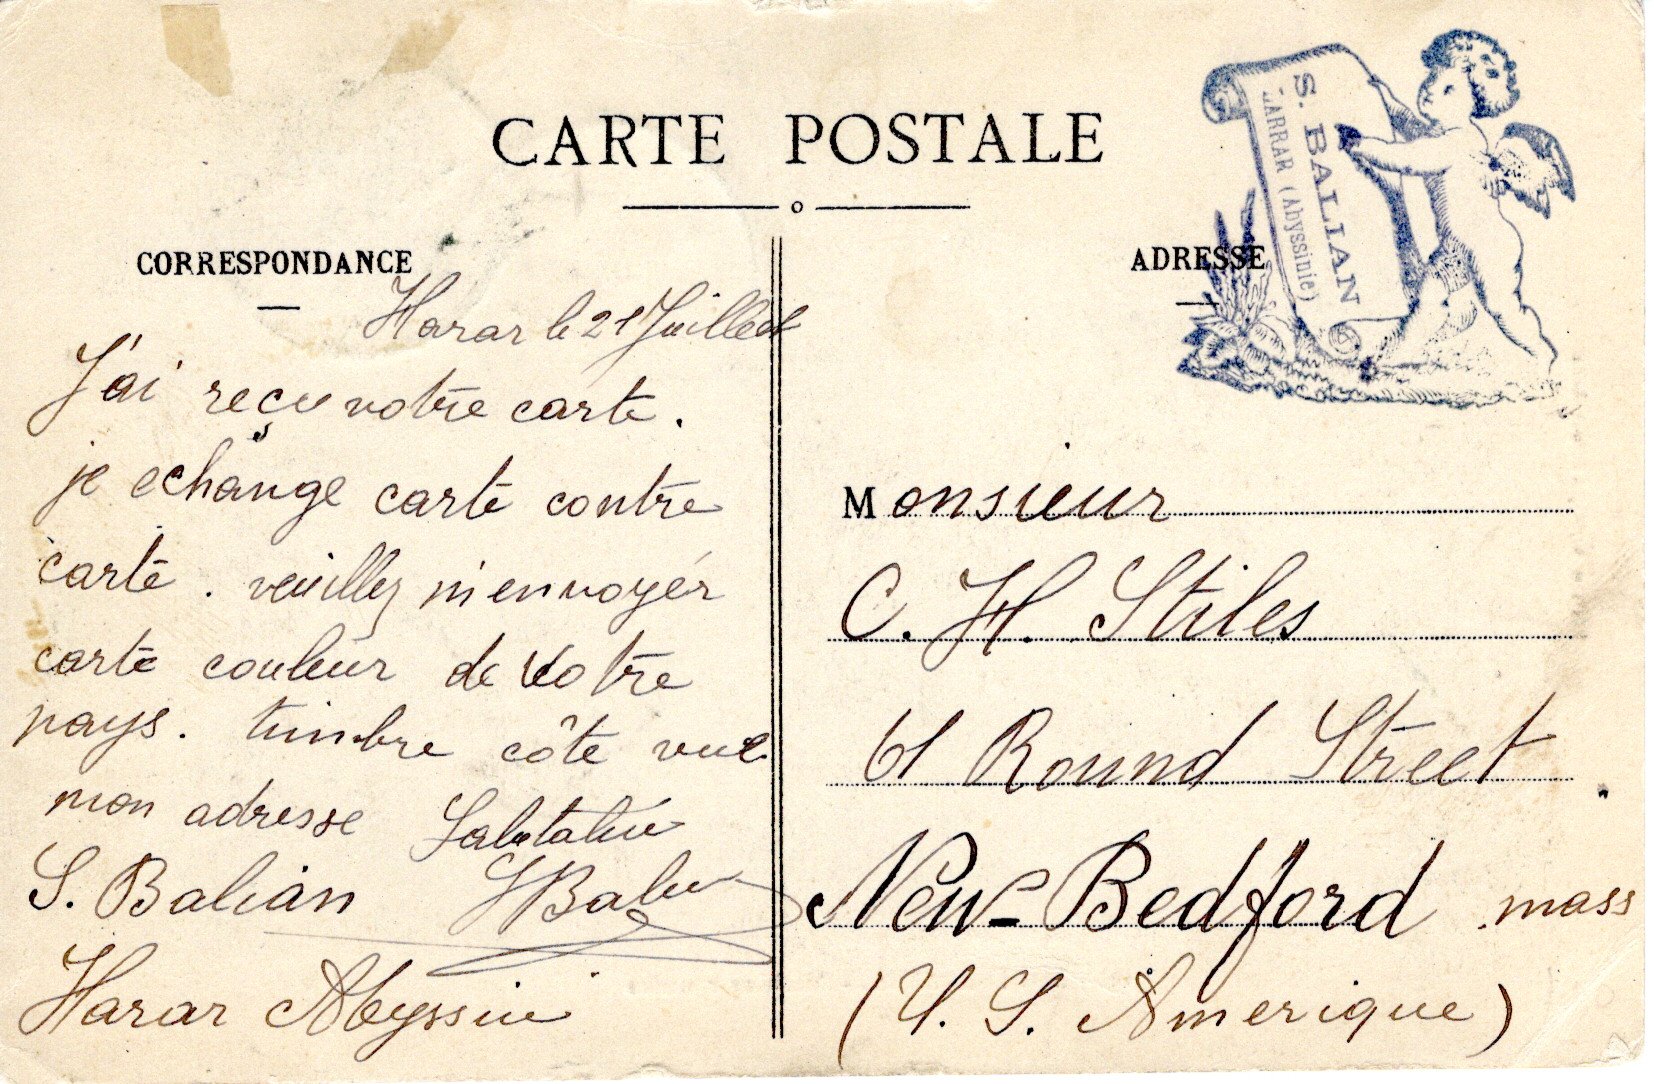 CARTE POSTALE
CORRESPONDANCE
Harar le 21 Juillet
J'ai reçu votre carte.
je echange carte contre
carte. veuillez m'envoyér
carte couleur de votre
pays. timbre côte vue
mon adresse
S. Balian
Harar Abyssinie
ADRESSE
S. BALIAN
HARRAR (Abyssinie)
Monsieur
C. H. Stiles
61 Round Street
New-Bedford mass
(U. S. Amerique)